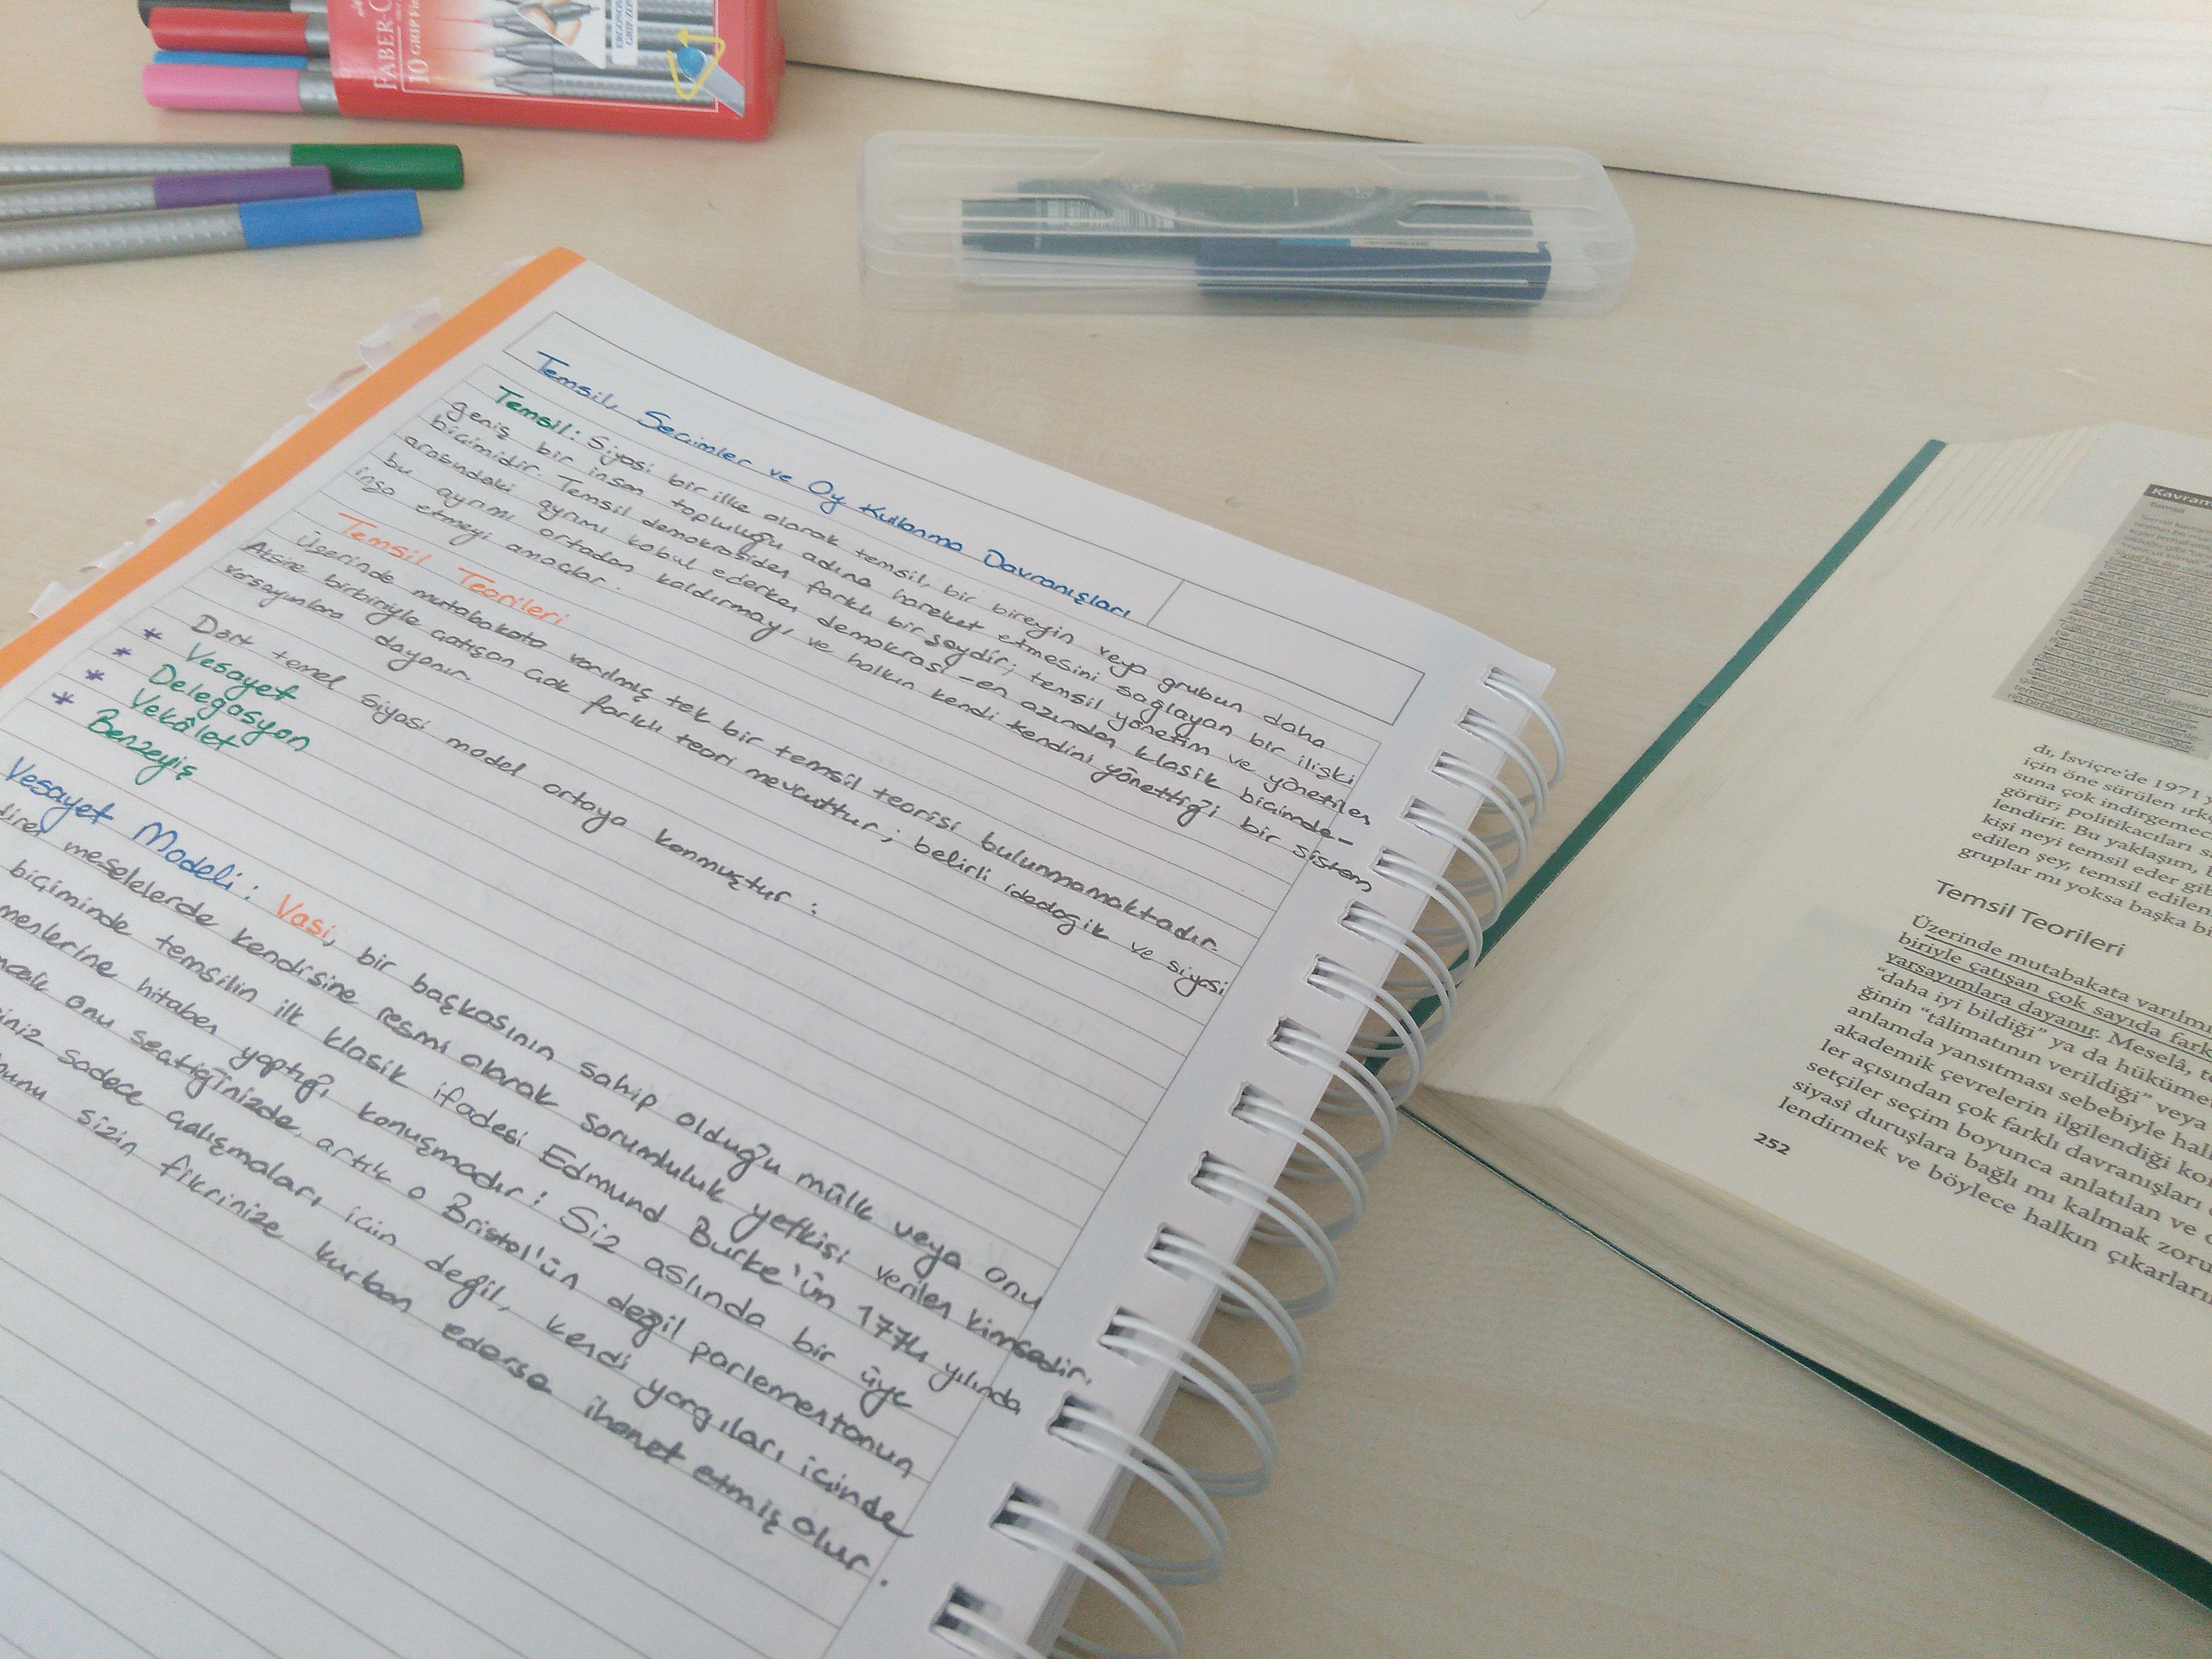 FABER-C
10 GRIP Fin
Temsil, Seçimler ve Oy Kullanma Davranışları
Temsil: Siyasi bir ilke olarak temsil, bir bireyin veya grubun daha
geniş bir insan topluluğu adına hareket etmesini sağlayan bir ilişki
biçimidir. Temsil demokrasiden farklı birşeydir; temsil yönetim ve yönetilen
arasındaki ayrımı kabul ederken demokrasi -en azından klasik biçimde-
bu ayrımı ortadan kaldırmayı ve halkın kendi kendini yönettiği bir sistem
inşa etmeyi amaçlar.
Temsil Teorileri
Üzerinde mutabakata varılmış tek bir temsil teorisi bulunmamaktadır.
Aksine birbiriyle çatışan çok farklı teori mevcuttur; belirli ideolojik ve siyasi
varsayımlara dayanır.
Dört temel siyasi model ortaya konmuştur:
* Vesayet
* Delegasyon
* Vekâlet
* Benzeyiş
Vesayet Modeli: Vasi, bir başkasının sahip olduğu mülk veya onu
meselelerde kendisine resmi olarak sorumluluk yetkisi verilen kimsedir.
biçiminde temsilin ilk klasik ifadesi Edmund Burke'ün 1774 yılında
hitaben yaptığı konuşmadır: Siz aslında bir üye
onu seçtiğinizde, artık o Bristol'ün değil parlementonun
sadece çalışmaları için değil, kendi yargıları içinde
sizin fikrinize kurban ederse ihanet etmiş olur.
Kavram
Temsil
dı, İsviçre'de 1971 y
için öne sürülen ırkç
suna çok indirgemec
görür; politikacıları s
lendirir. Bu yaklaşım, b
kişi neyi temsil eder gib
edilen şey, temsil edilen
gruplar mı yoksa başka bi
Temsil Teorileri
Üzerinde mutabakata varılm
biriyle çatışan çok sayıda fark
varsayımlara dayanır. Meselâ, te
"daha iyi bildiği" ya da hüküme
ğinin "tâlimatının verildiği" veya
anlamda yansıtması sebebiyle hal
akademik çevrelerin ilgilendiği ko
ler açısından çok farklı davranışları
setçiler seçim boyunca anlatılan ve
siyasî duruşlara bağlı mı kalmak zoru
lendirmek ve böylece halkın çıkarların
252